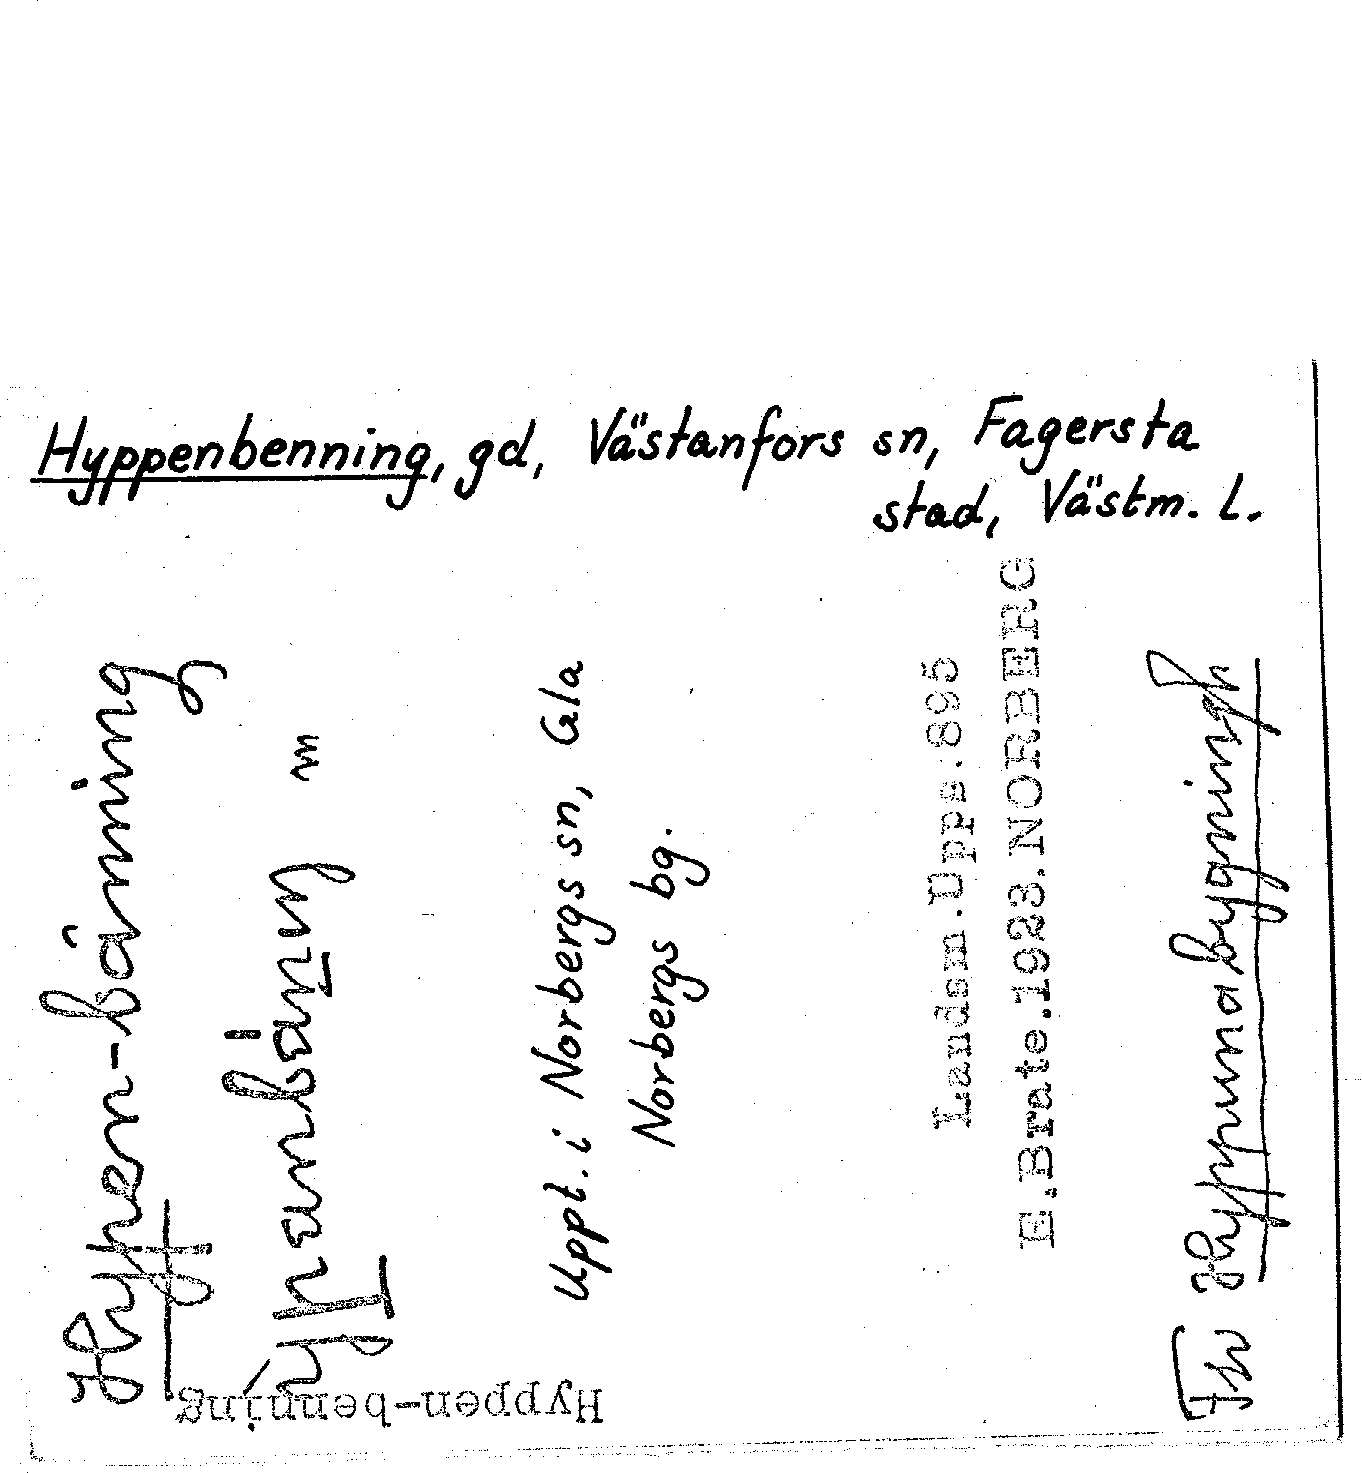 Hyppenbenning, gd, Västanfors sn, Fagersta
stad, Västm. l.
Hyppen-bänning
m
Uppt. i Norbergs sn, Gla
Norbergs bg.
Landsm.Upps.895
E.Brate.1923.NORBERG
Hyppunabygningh
Hyppen-benning